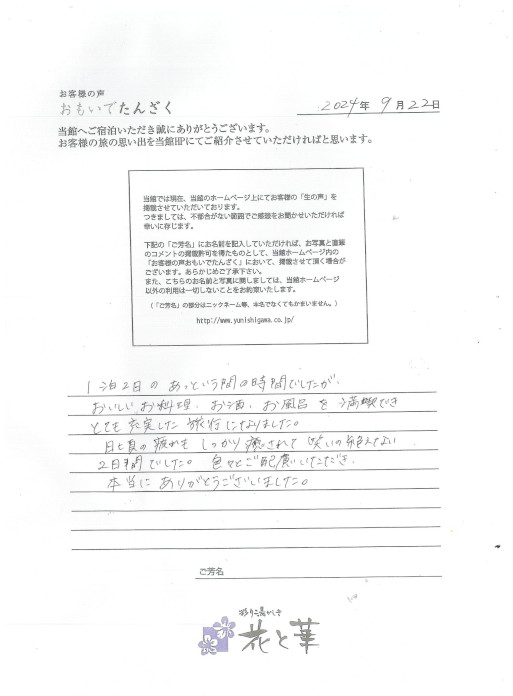 お客様の声
おもいでたんざく
2024年 9月22日
当館へご宿泊いただき誠にありがとうございます。
お客様の旅の思い出を当館HPにてご紹介させていただければと思います。
当館では現在、当館のホームページ上にてお客様の「生の声」を
掲載させていただいております。
つきましては、不都合がない範囲でご感想をお聞かせいただければ
幸いに存じます。
下記の「ご芳名」にお名前を記入していただければ、お写真と直筆
のコメントの掲載許可を得たものとして、当館ホームページ内の
「お客様の声おもいでたんざく」において、掲載させて頂く場合が
ございます。あらかじめご了承下さい。
また、こちらのお名前と写真に関しましては、当館ホームページ
以外の利用は一切しないことをお約束いたします。
(「ご芳名」の部分はニックネーム等、本名でなくてもかまいません。)
http://www.yunishigawa.co.jp/
1泊2日の あっという間の時間でしたが、
おいしい お料理、お酒、お風呂 を 満喫でき
とても 充実した 旅行 になりました。
日頃の 疲れも しっかり 癒されて 笑いの 絶えない
2日間でした。 色々とご配慮いただき、
本当に ありがとうございました。
ご芳名
彩り湯かしき
花と華